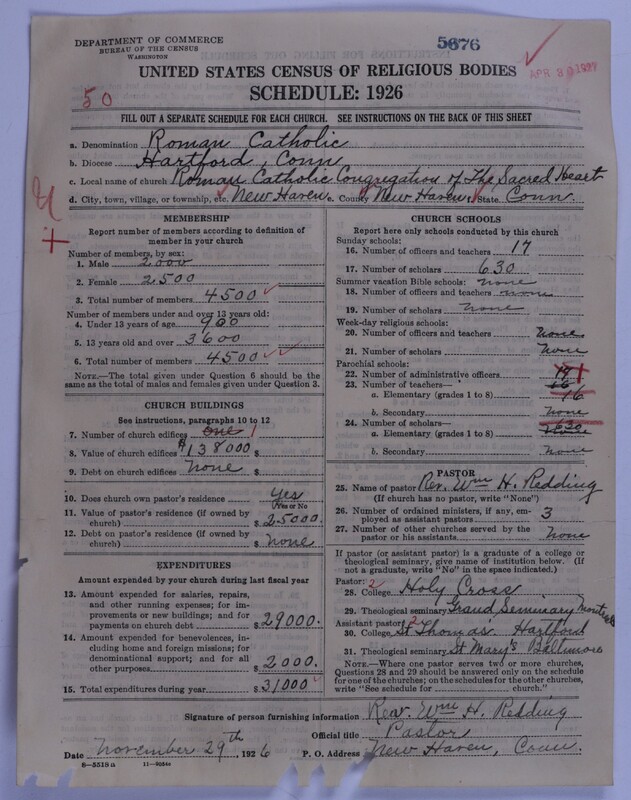 DEPARTMENT OF COMMERCE
BUREAU OF THE CENSUS
WASHINGTON
5676
APR 8 1927
UNITED STATES CENSUS OF RELIGIOUS BODIES
SCHEDULE: 1926
50
FILL OUT A SEPARATE SCHEDULE FOR EACH CHURCH. SEE INSTRUCTIONS ON THE BACK OF THIS SHEET
a. Denomination Roman Catholic
b. Diocese Hartford, Conn
c. Local name of church Roman Catholic Congregation of The Sacred Heart
d. City, town, village, or township, etc. New Haven e. County New Haven State Conn.
MEMBERSHIP
Report number of members according to definition of
member in your church
Number of members, by sex:
1. Male 2000
2. Female 2500
3. Total number of members 4500
Number of members under and over 13 years old:
4. Under 13 years of age 900
5. 13 years old and over 3600
6. Total number of members 4500
NOTE.—The total given under Question 6 should be the
same as the total of males and females given under Question 3.
CHURCH BUILDINGS
See instructions, paragraphs 10 to 12
7. Number of church edifices one 1
8. Value of church edifices $138000 $
9. Debt on church edifices none $
10. Does church own pastor's residence Yes
Yes or No
11. Value of pastor's residence (if owned by
church) $25000.
12. Debt on pastor's residence (if owned by
church) $none
EXPENDITURES
Amount expended by your church during last fiscal year
13. Amount expended for salaries, repairs,
and other running expenses; for im-
provements or new buildings; and for
payments on church debt $29000.
14. Amount expended for benevolences, in-
cluding home and foreign missions; for
denominational support; and for all
other purposes $2000.
15. Total expenditures during year $31000
CHURCH SCHOOLS
Report here only schools conducted by this church
Sunday schools:
16. Number of officers and teachers 17
17. Number of scholars 630
Summer vacation Bible schools: none
18. Number of officers and teachers none
19. Number of scholars none
Week-day religious schools:
20. Number of officers and teachers None
21. Number of scholars None
Parochial schools:
22. Number of administrative officers 1
23. Number of teachers—
a. Elementary (grades 1 to 8) 16
b. Secondary none
24. Number of scholars— 630
a. Elementary (grades 1 to 8) none
b. Secondary None
PASTOR
25. Name of pastor Rev. Wm H. Redding
(If church has no pastor, write "None")
26. Number of ordained ministers, if any, em-
ployed as assistant pastors 3
27. Number of other churches served by the
pastor or his assistants none
If pastor (or assistant pastor) is a graduate of a college or
theological seminary, give name of institution below. (If
not a graduate, write "No" in the space indicated.)
Pastor: 2
28. College Holy Cross
29. Theological seminary Grand Seminary Montreal
Assistant pastor: 2
30. College St Thomas' Hartford
31. Theological seminary St Mary's Baltimore
NOTE.—Where one pastor serves two or more churches,
Questions 28 and 29 should be answered only on the schedule
for one of the churches; on the schedules for the other churches,
write "See schedule for church."
Signature of person furnishing information Rev. Wm H. Redding
Official title Pastor
Date November 29th, 1926 P. O. Address New Haven, Conn.
8—5518a